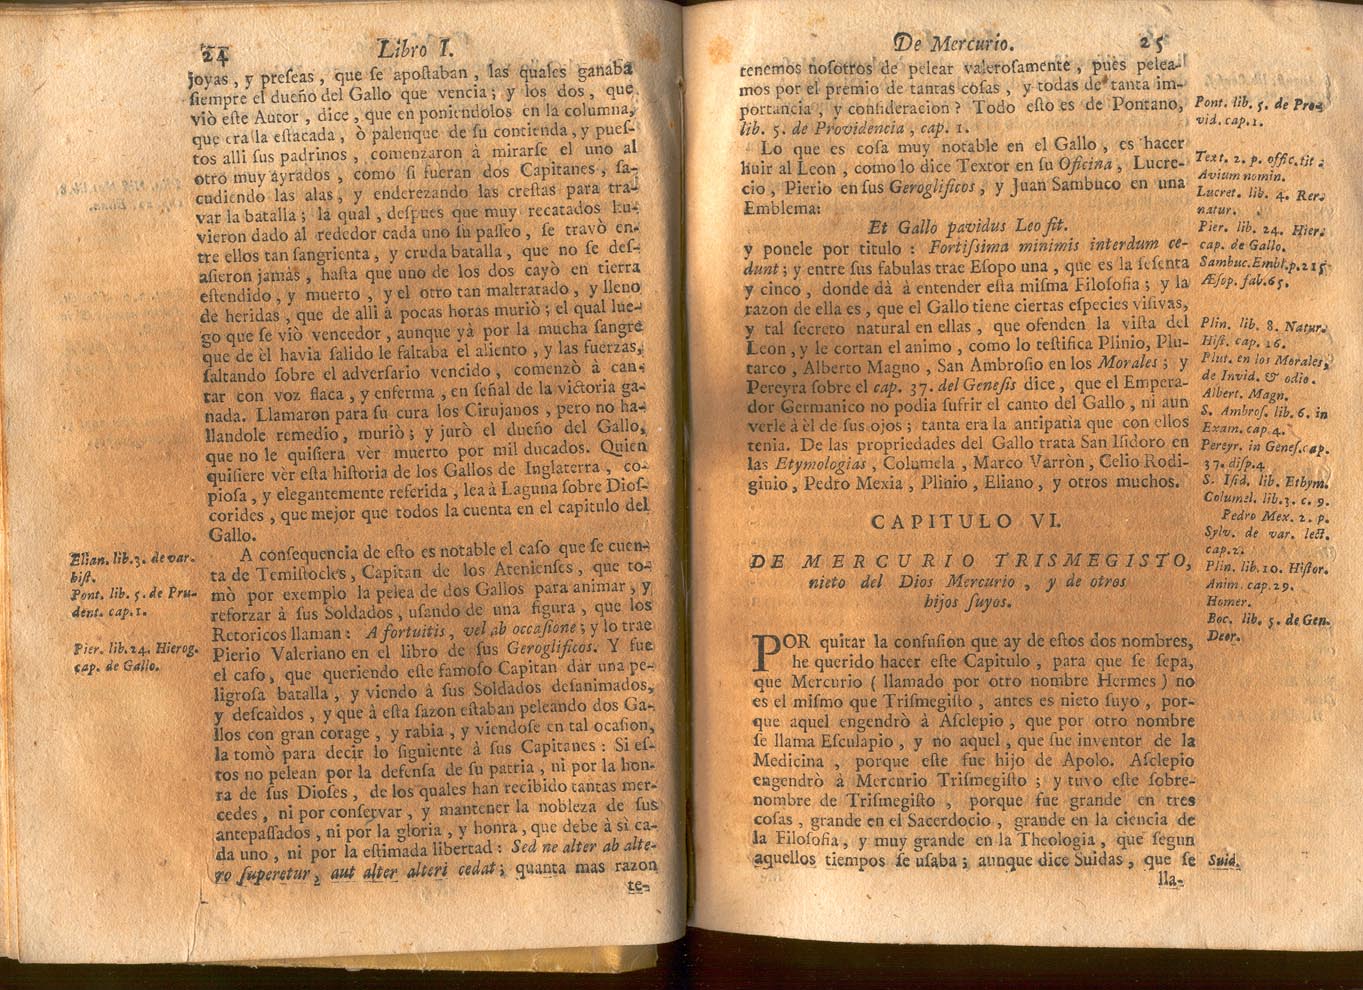 24 Libro I.
joyas, y preseas, que se apostaban, las quales ganaba
siempre el dueño del Gallo que vencia; y los dos, que
viò este Autor, dice, que en poniendolos en la columna,
que era la estacada, ò palenque de su contienda, y pues-
tos alli sus padrinos, comenzaron à mirarse el uno al
otro muy ayrados, como si fueran dos Capitanes, sa-
cudiendo las alas, y enderezando las crestas para tra-
var la batalla; la qual, despues que muy recatados hu-
vieron dado al rededor cada uno su passeo, se travò en-
tre ellos tan sangrienta, y cruda batalla, que no se des-
asieron jamàs, hasta que uno de los dos cayò en tierra
estendido, y muerto, y el otro tan maltratado, y lleno
de heridas, que de alli à pocas horas muriò; el qual lue-
go que se viò vencedor, aunque yà por la mucha sangre
que de èl havia salido le faltaba el aliento, y las fuerzas,
saltando sobre el adversario vencido, comenzò à can-
tar con voz flaca, y enferma, en señal de la victoria ga-
nada. Llamaron para su cura los Cirujanos, pero no ha-
llandole remedio, muriò; y jurò el dueño del Gallo,
que no le quisiera ver muerto por mil ducados. Quien
quisiere vèr esta historia de los Gallos de Inglaterra, co-
piosa, y elegantemente referida, lea à Laguna sobre Dios-
corides, que mejor que todos la cuenta en el capitulo del
Gallo.
A consequencia de esto es notable el caso que se cuen-
ta de Temistocles, Capitan de los Atenienses, que to-
mò por exemplo la pelea de dos Gallos para animar, y
reforzar à sus Soldados, usando de una figura, que los
Retoricos llaman: A fortuitis, vel ab occasione; y lo trae
Pierio Valeriano en el libro de sus Geroglificos. Y fue
el caso, que queriendo este famoso Capitan dàr una pe-
ligrosa batalla, y viendo à sus Soldados desanimados,
y descaìdos, y que à esta sazon estaban peleando dos Ga-
llos con gran corage, y rabia, y viendose en tal ocasion,
la tomò para decir lo siguiente à sus Capitanes: Si es-
tos no pelean por la defensa de su patria, ni por la hon-
ra de sus Dioses, de los quales han recibido tantas mer-
cedes, ni por conservar, y mantener la nobleza de sus
antepassados, ni por la gloria, y honra, que debe à sì ca-
da uno, ni por la estimada libertad: Sed ne alter ab alte-
ro superetur, aut alter alteri cedat; quanta mas razon
te-
Elian. lib. 3. de var.
hist.
Pont. lib. 5. de Pru-
dent. cap. 1.
Pier. lib. 24. Hierog.
cap. de Gallo.
De Mercurio. 25
tenemos nosotros de pelear valerosamente, pues pelea-
mos por el premio de tantas cosas, y todas de tanta im-
portancia, y consideracion? Todo esto es de Pontano,
lib. 5. de Providencia, cap. 1.
Lo que es cosa muy notable en el Gallo, es hacer
huir al Leon, como lo dice Textor en su Oficina, Lucre-
cio, Pierio en sus Geroglificos, y Juan Sambuco en una
Emblema:
Et Gallo pavidus Leo fit.
y ponele por titulo: Fortissima minimis interdum ce-
dunt; y entre sus fabulas trae Esopo una, que es la sesenta
y cinco, donde dà à entender esta misma Filosofia; y la
razon de ella es, que el Gallo tiene ciertas especies visivas,
y tal secreto natural en ellas, que ofenden la vista del
Leon, y le cortan el animo, como lo testifica Plinio, Plu-
tarco, Alberto Magno, San Ambrosio en los Morales; y
Pereyra sobre el cap. 37. del Genesis dice, que el Empera-
dor Germanico no podia sufrir el canto del Gallo, ni aun
verle à èl de sus ojos; tanta era la antipatia que con ellos
tenia. De las propriedades del Gallo trata San Isidoro en
las Etymologias, Columela, Marco Varròn, Celio Rodi-
ginio, Pedro Mexia, Plinio, Eliano, y otros muchos.
CAPITULO VI.
DE MERCURIO TRISMEGISTO,
nieto del Dios Mercurio, y de otros
hijos suyos.
POR quitar la confusion que ay de estos dos nombres,
he querido hacer este Capitulo, para que se sepa,
que Mercurio (llamado por otro nombre Hermes) no
es el mismo que Trismegisto, antes es nieto suyo, por-
que aquel engendrò à Asclepio, que por otro nombre
se llama Esculapio, y no aquel, que fue inventor de la
Medicina, porque este fue hijo de Apolo. Asclepio
engendrò à Mercurio Trismegisto; y tuvo este sobre-
nombre de Trismegisto, porque fue grande en tres
cosas, grande en el Sacerdocio, grande en la ciencia de
la Filosofia, y muy grande en la Theologia, que segun
aquellos tiempos se usaba; aunque dice Suidas, que se
lla-
Pont. lib. 5. de Pro-
vid. cap. 1.
Text. 2. p. offic. tit.
Avium nomin.
Lucret. lib. 4. Rer.
natur.
Pier. lib. 24. Hier.
cap. de Gallo.
Sambuc. Embl. p. 215
Æsop. fab. 65.
Plin. lib. 8. Natur.
Hist. cap. 16.
Plut. en los Morales,
de Invid. & odio.
Albert. Magn.
S. Ambros. lib. 6. in
Exam. cap. 4.
Pereyr. in Genes. cap.
37. disp. 4
S. Isid. lib. Ethym.
Columel. lib. 3. c. 9.
Pedro Mex. 2. p.
Sylv. de var. lect.
cap. 2.
Plin. lib. 10. Histor.
Anim. cap. 29.
Homer.
Boc. lib. 5. de Gen.
Deor.
Suid.